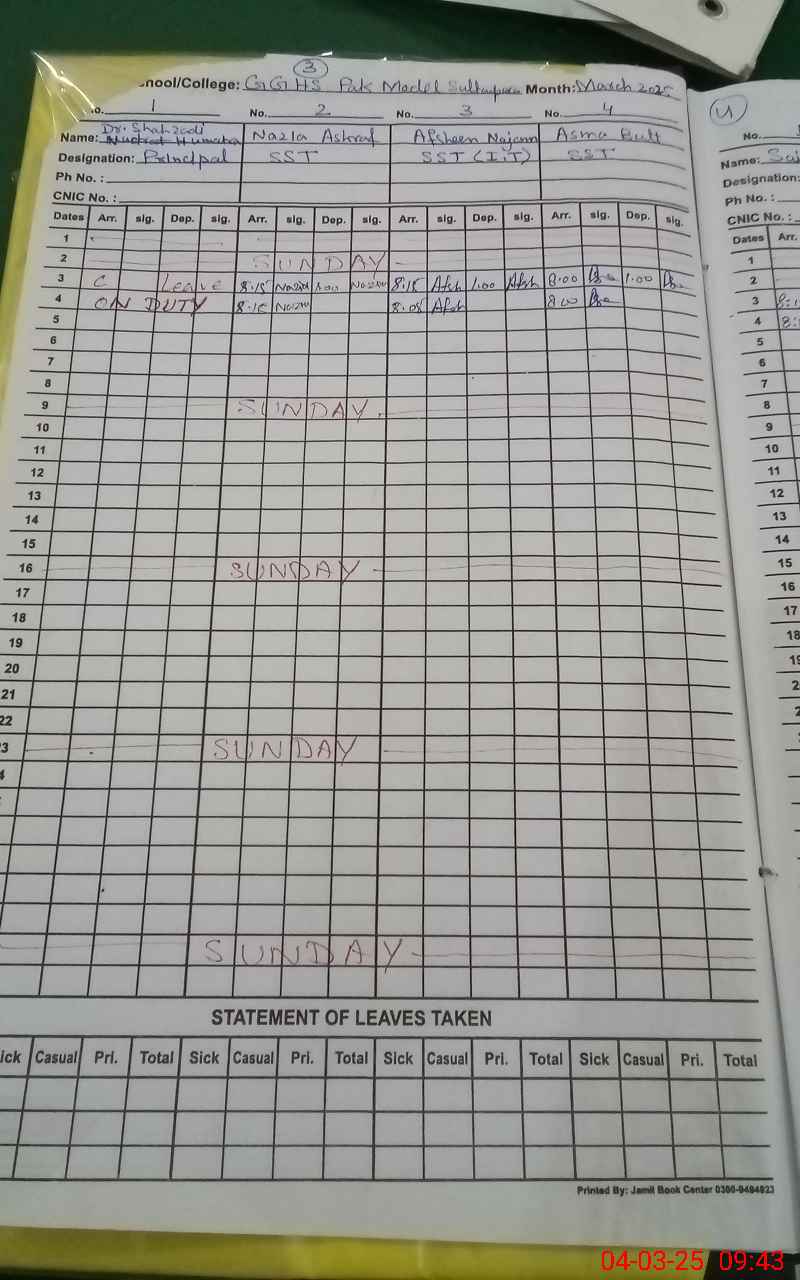 3
hool/College: GGHS Pak Model Sultanpura Month: March 2025
o. 1 No. 2 No. 3 No. 4
Name: Dr. Shahzadi Nazia Ashraf Afsheen Najam Asma Butt
Designation: Principal SST SST (I.T) SST
Ph No. :
CNIC No. :
Dates Arr. sig. Dep. sig. Arr. sig. Dep. sig. Arr. sig. Dep. sig. Arr. sig. Dep. sig.
1
2 SUNDAY
3 C Leave 8.15 Nazia 1.00 Nazia 8.15 Afsh 1.00 Afsh 8.00 1.00
4 ON DUTY 8.15 Nazia 8.05 Afsh 8.00
5
6
7
8
9 SUNDAY.
10
11
12
13
14
15
16 SUNDAY
17
18
19
20
21
22
3 SUNDAY
4
SUNDAY
STATEMENT OF LEAVES TAKEN
ick Casual Pri. Total Sick Casual Pri. Total Sick Casual Pri. Total Sick Casual Pri. Total
Printed By: Jamil Book Center 0300-9484923
4
No.
Name: Sa
Designation:
Ph No. :
CNIC No. :
Dates Arr.
1
2
3 8:
4 8:
5
6
7
8
9
10
11
12
13
14
15
16
17
18
19
2
2
04-03-25 09:43